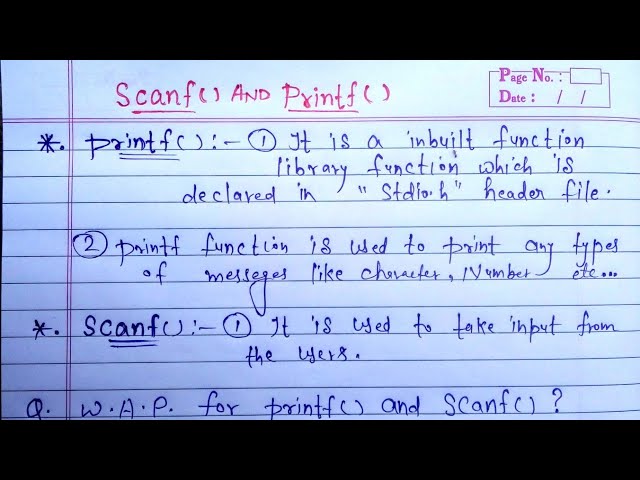 Page No. :
Date : / /
Scanf() AND Printf()
*. printf() :- ① It is a inbuilt function
library function which is
declared in "Stdio.h" header file.
② printf function is used to print any types
of messeges like character, Number etc...
*. Scanf() :- ① It is used to take input from
the users.
Q. W.A.P. for printf() and Scanf() ?